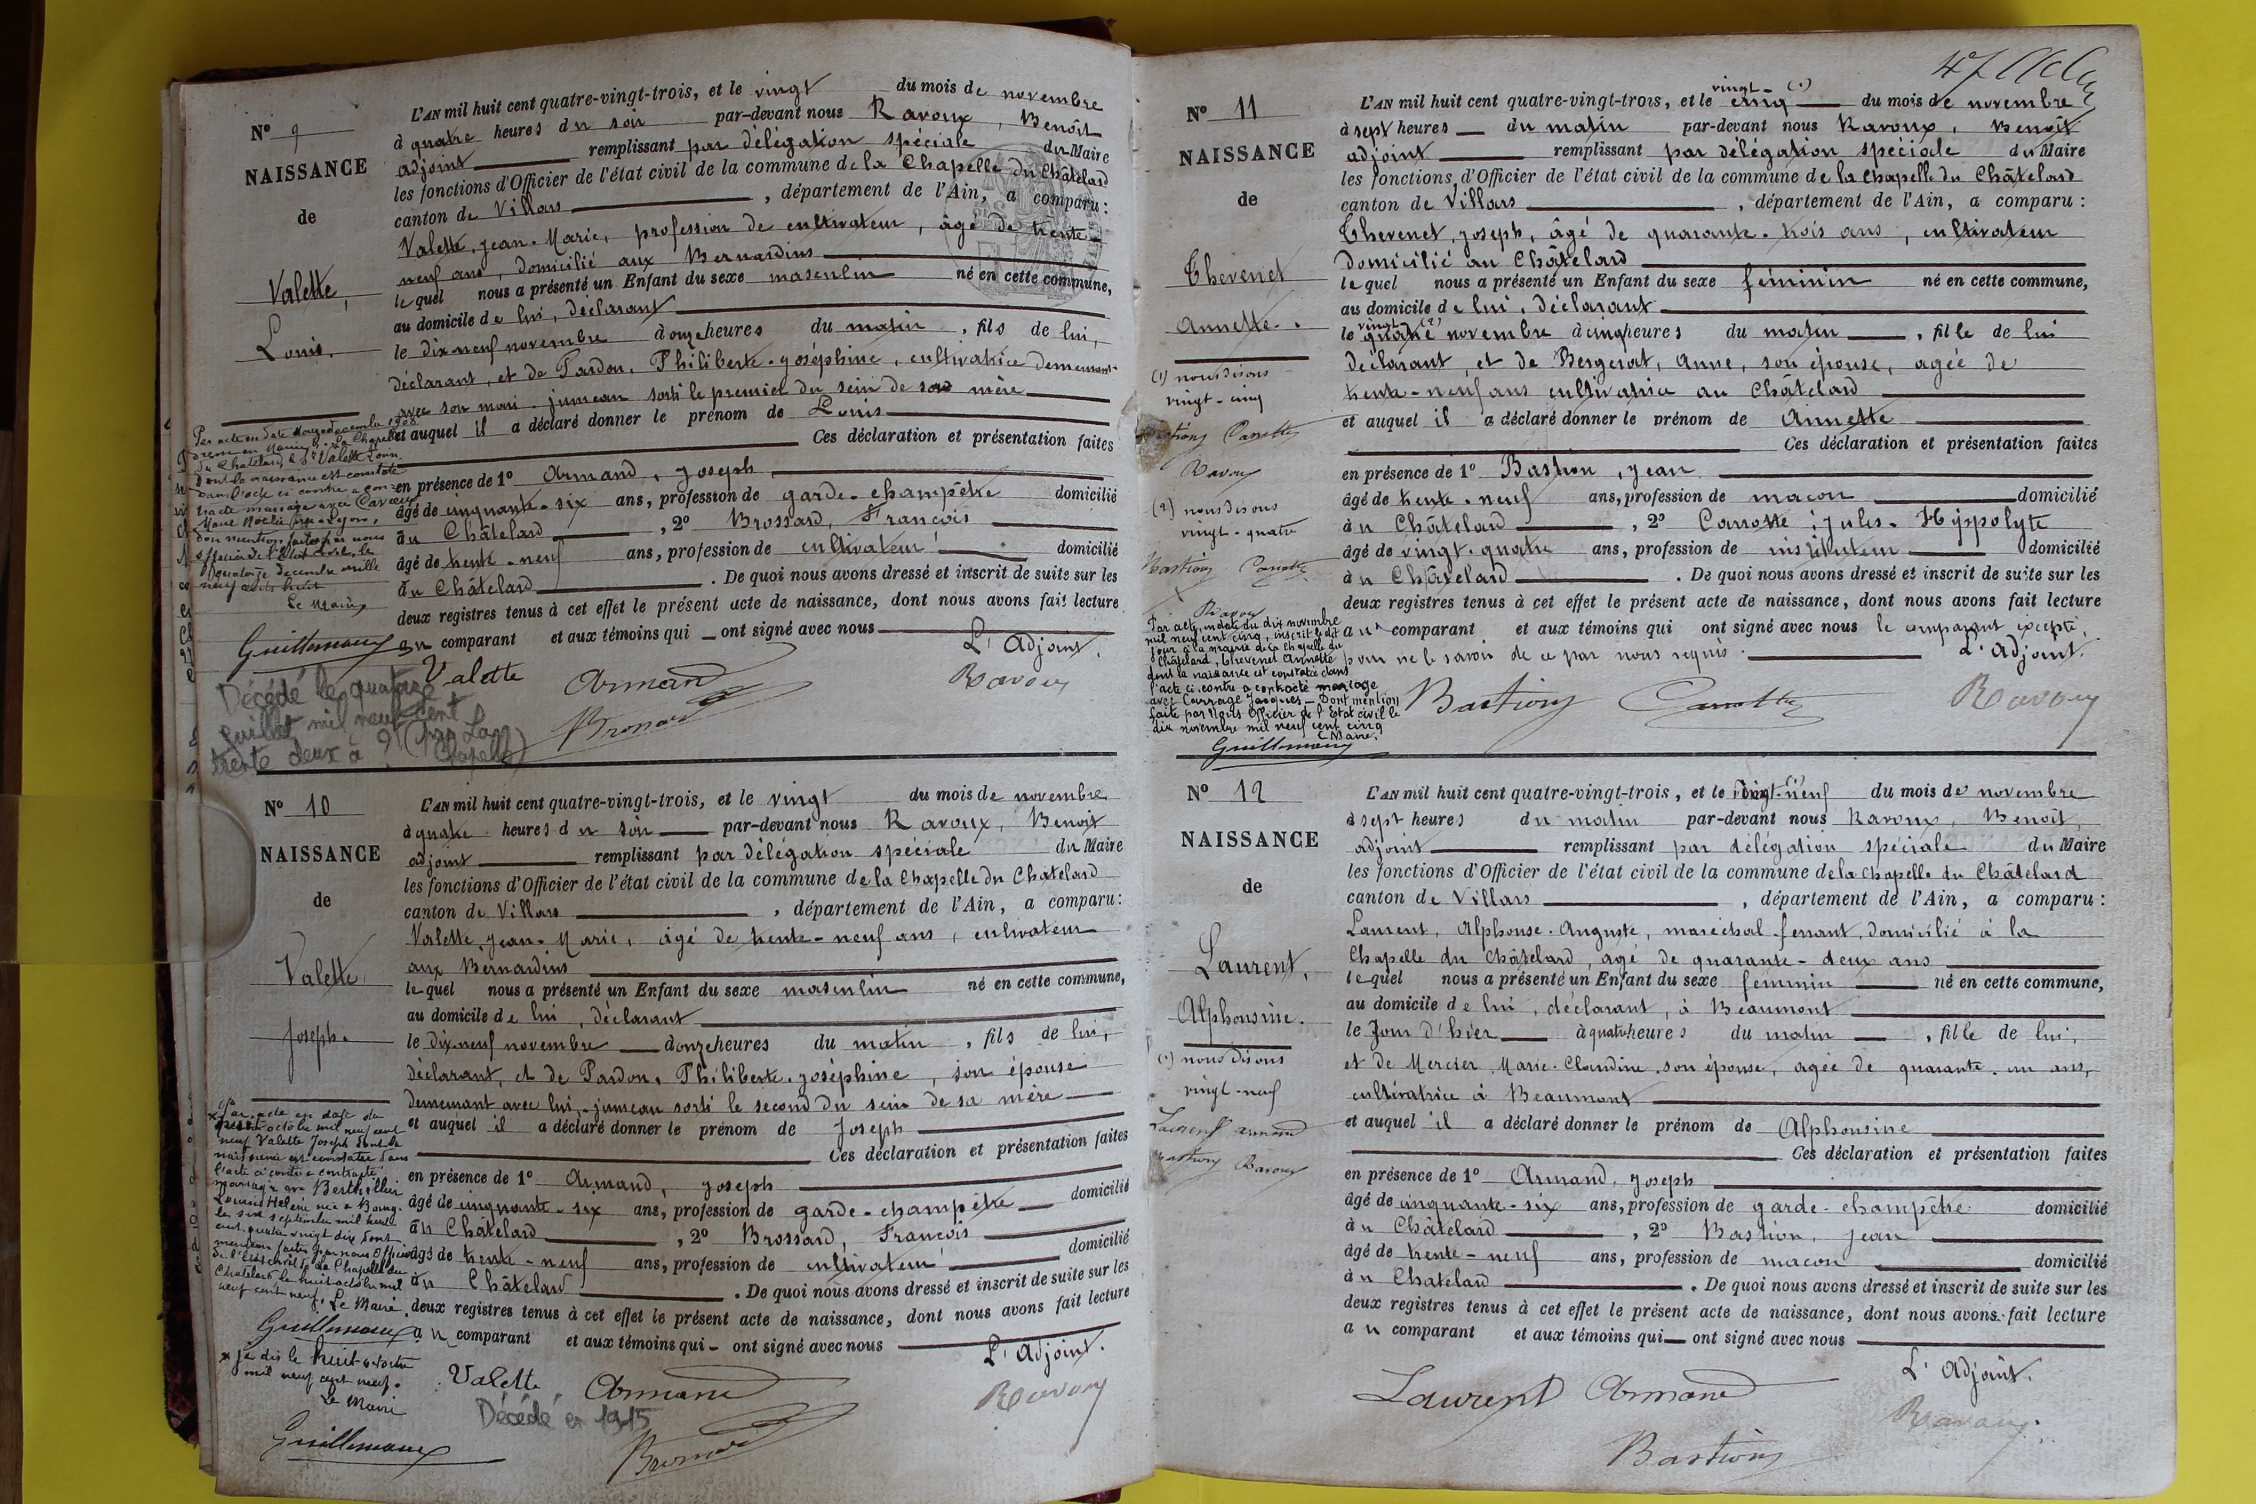 N° 9
NAISSANCE
de
Valette,
Louis.
L'AN mil huit cent quatre-vingt-trois, et le vingt du mois de novembre
à quatre heures du soir par-devant nous Ravoux, Benoît
adjoint remplissant par délégation spéciale du Maire
les fonctions d'Officier de l'état civil de la commune de la Chapelle du Châtelard
canton de Villars, département de l'Ain, a comparu:
Valette, Jean-Marie, profession de cultivateur, âgé de trente-
neuf ans, domicilié aux Bernardins
lequel nous a présenté un Enfant du sexe masculin né en cette commune,
au domicile de lui, déclarant
le dix-neuf novembre à onze heures du matin, fils de lui,
déclarant, et de Pardon, Philiberte-Joséphine, cultivatrice demeurant
avec son mari. jumeau sorti le premier du sein de sa mère
et auquel il a déclaré donner le prénom de Louis
Ces déclaration et présentation faites
en présence de 1° Armand, Joseph
âgé de cinquante-six ans, profession de garde-champêtre domicilié
au Châtelard, 2° Brossard, François
âgé de trente-neuf ans, profession de cultivateur domicilié
au Châtelard. De quoi nous avons dressé et inscrit de suite sur les
deux registres tenus à cet effet le présent acte de naissance, dont nous avons fait lecture
au comparant et aux témoins qui ont signé avec nous
L'Adjoint.
Valette Armand Ravoux
Brossard
Par acte en date du
dressé en Mairie de la Chapelle
du Chatelard, le Sr Valette Louis
dont la naissance est constatée
dans l'acte ci contre a con-
tracté mariage avec
Marie
dont mention faite par nous
officier de l'Etat civil, le
quatorze decembre mille
neuf cent huit
Le Maire
Guillemaux
Décédé le quatorze
juillet mil neuf cent
trente deux à ? (par La
Chapelle)
N° 10
NAISSANCE
de
Valette
Joseph.
L'AN mil huit cent quatre-vingt-trois, et le vingt du mois de novembre
à quatre heures du soir par-devant nous Ravoux, Benoît
adjoint remplissant par délégation spéciale du Maire
les fonctions d'Officier de l'état civil de la commune de la Chapelle du Chatelard
canton de Villars, département de l'Ain, a comparu:
Valette, Jean-Marie, âgé de trente-neuf ans, cultivateur
aux Bernardins
lequel nous a présenté un Enfant du sexe masculin né en cette commune,
au domicile de lui, déclarant
le dix-neuf novembre à onze heures du matin, fils de lui,
déclarant, et de Pardon, Philiberte-Joséphine, son épouse
demeurant avec lui, jumeau sorti le second du sein de sa mère
et auquel il a déclaré donner le prénom de Joseph
Ces déclaration et présentation faites
en présence de 1° Armand, Joseph
âgé de cinquante-six ans, profession de garde-champêtre domicilié
au Châtelard, 2° Brossard, François
âgé de trente-neuf ans, profession de cultivateur domicilié
au Châtelard. De quoi nous avons dressé et inscrit de suite sur les
deux registres tenus à cet effet le présent acte de naissance, dont nous avons fait lecture
au comparant et aux témoins qui ont signé avec nous
L'Adjoint.
Valette Armand Ravoux
Décédé en 1915
Brossard
Par acte en date du
octobre mil neuf cent
neuf Valette Joseph dont la
naissance est constatée dans
l'acte ci contre a contracté
mariage avec
née à Bourg
le six septembre mil huit
cent quatre vingt dix dont
mention faite par nous Officier
de l'état civil de la Chapelle du
Chatelard le huit octobre mil
neuf cent neuf. Le Maire,
Guillemaux
x je dis le huit octobre
mil neuf cent neuf.
Le Maire
Guillemaux
N° 11
NAISSANCE
de
Thevenet
Annette.
L'AN mil huit cent quatre-vingt-trois, et le vingt- cinq (1) du mois de novembre
à sept heures du matin par-devant nous Ravoux, Benoît
adjoint remplissant par délégation spéciale du Maire
les fonctions d'Officier de l'état civil de la commune de la Chapelle du Châtelard
canton de Villars, département de l'Ain, a comparu:
Thevenet, Joseph, âgé de quarante-trois ans, cultivateur
domicilié au Châtelard
lequel nous a présenté un Enfant du sexe féminin né en cette commune,
au domicile de lui, déclarant
le vingt- quatre (2) novembre à cinq heures du matin, fille de lui
déclarant, et de Bergerat, Anne, son épouse, agée de
trente-neuf ans cultivatrice au Châtelard
et auquel il a déclaré donner le prénom de Annette
Ces déclaration et présentation faites
en présence de 1° Bastion, Jean
âgé de trente-neuf ans, profession de maçon domicilié
au Châtelard, 2° Carrotte, Jules-Hyppolyte
âgé de vingt-quatre ans, profession de instituteur domicilié
au Châtelard. De quoi nous avons dressé et inscrit de suite sur les
deux registres tenus à cet effet le présent acte de naissance, dont nous avons fait lecture
au comparant et aux témoins qui ont signé avec nous le comparant excepté,
pour ne le savoir de ce par nous requis.
L'Adjoint.
Bastion Carrotte Ravoux
(1) nous disons
vingt-cinq
Bastion Carrotte
Ravoux
(2) nous disons
vingt-quatre
Bastion Carrotte
Ravoux
Par acte en date du dix novembre
mil neuf cent cinq, inscrit le dit
jour à la mairie de la Chapelle du
Châtelard, Thevenet Annette
dont la naissance est constatée dans
l'acte ci contre a contracté mariage
avec Carrage Jacques - Dont mention
faite par Nous Officier de l'Etat civil le
dix novembre mil neuf cent cinq
Maire.
Guillemaux
N° 12
NAISSANCE
de
Laurent,
Alphonsine.
L'AN mil huit cent quatre-vingt-trois, et le vingt-neuf (1) du mois de novembre
à sept heures du matin par-devant nous Ravoux, Benoît,
adjoint remplissant par délégation spéciale du Maire
les fonctions d'Officier de l'état civil de la commune de la Chapelle du Châtelard
canton de Villars, département de l'Ain, a comparu:
Laurent, Alphonse-Auguste, maréchal-ferrant, domicilié à la
Chapelle du Châtelard, agé de quarante-deux ans
lequel nous a présenté un Enfant du sexe féminin né en cette commune,
au domicile de lui, déclarant, à Beaumont
le Jour d'hier à quatre heures du matin, fille de lui,
et de Mercier, Marie-Claudine, son épouse, agée de quarante-un ans,
cultivatrice à Beaumont
et auquel il a déclaré donner le prénom de Alphonsine
Ces déclaration et présentation faites
en présence de 1° Armand, Joseph
âgé de cinquante-six ans, profession de garde-champêtre domicilié
au Châtelard, 2° Bastion, Jean
âgé de trente-neuf ans, profession de maçon domicilié
au Chatelard. De quoi nous avons dressé et inscrit de suite sur les
deux registres tenus à cet effet le présent acte de naissance, dont nous avons fait lecture
au comparant et aux témoins qui ont signé avec nous
L'Adjoint.
Laurent Armand Ravoux
Bastion
(1) nous disons
vingt-neuf
Laurent Armand
Bastion Ravoux